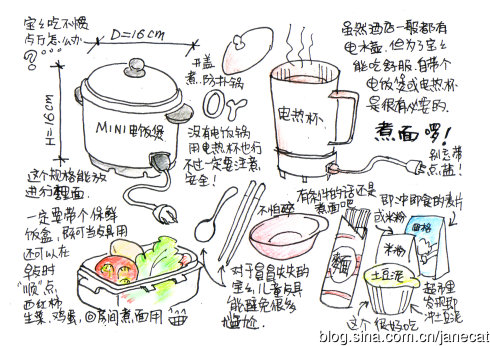 宝乡吃不惯
点厅怎么办
D=16cm
H=16cm
MINI电饭煲
开盖
煮,防扑锅
没有电饭锅
用电热杯也行
不过一定要注意
安全!
电热杯
虽然酒店一般都有
电水壶,但为了宝乡
能吃舒服,自带个
电饭煲或电热杯
是很有必要的.
煮面啰!
别忘带
点盐!
这个规格能放
进行李里面.
一定要带个保鲜
饭盒,既可当点具用
还可以在
早点时
"顺"点
西红柿
生菜,鸡蛋,回房间煮面用
不怕碎
对于自食其快的
宝乡,儿童点具
能避免很多
尴尬.
有制牛的话还是
煮面吧
面
即冲即食的麦片
或米粉
米粉
麦片
土豆泥
超市里
发现即
冲土豆泥
这个很好吃
blog.sina.com.cn/janecat